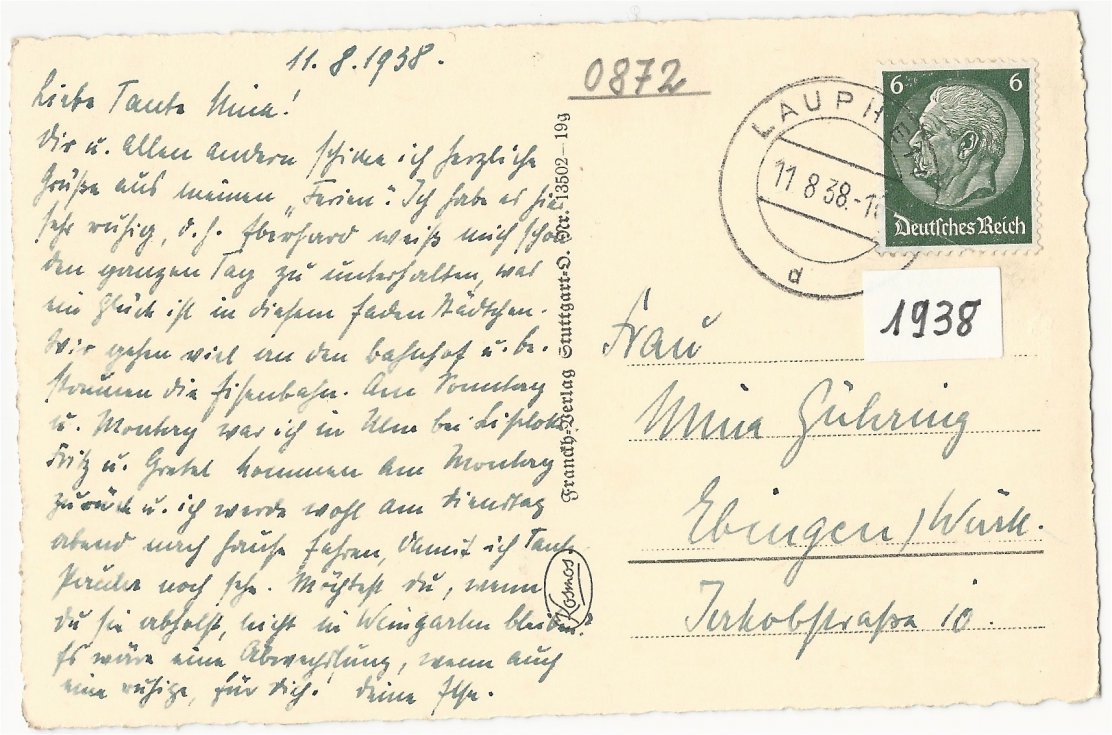 11.8.1938.
Liebe Tante Mina!
Dir u. allen andern schicke ich herzliche
Grüße aus meinen „Ferien". Ich habe es hier
sehr ruhig, d.h. Eberhard weiß mich schon
den ganzen Tag zu unterhalten, was
ein Glück ist in diesem faden Städtchen.
Wir gehen viel an den Bahnhof u. be-
staunen die Eisenbahn. Am Sonntag
u. Montag war ich in Ulm bei Liselotte.
Fritz u. Gretel kommen am Montag
zurück u. ich werde wohl am Dienstag
abend nach Hause fahren, damit ich Tante
Paula noch sehe. Möchtest du, wenn
du sie abholst, nicht in Weingarten bleiben?
Es wäre eine Abwechslung, wenn auch
eine ruhige, für dich! Deine Ilse.
Franckh-Verlag Stuttgart-O. Nr. 13502—19g
Kosmos
0872
LAUPHEIM
11.8.38.-1
d
6 6
Deutsches Reich
1938
Frau
Mina Gühring
Ebingen/Württ.
Jakobstraße 10.